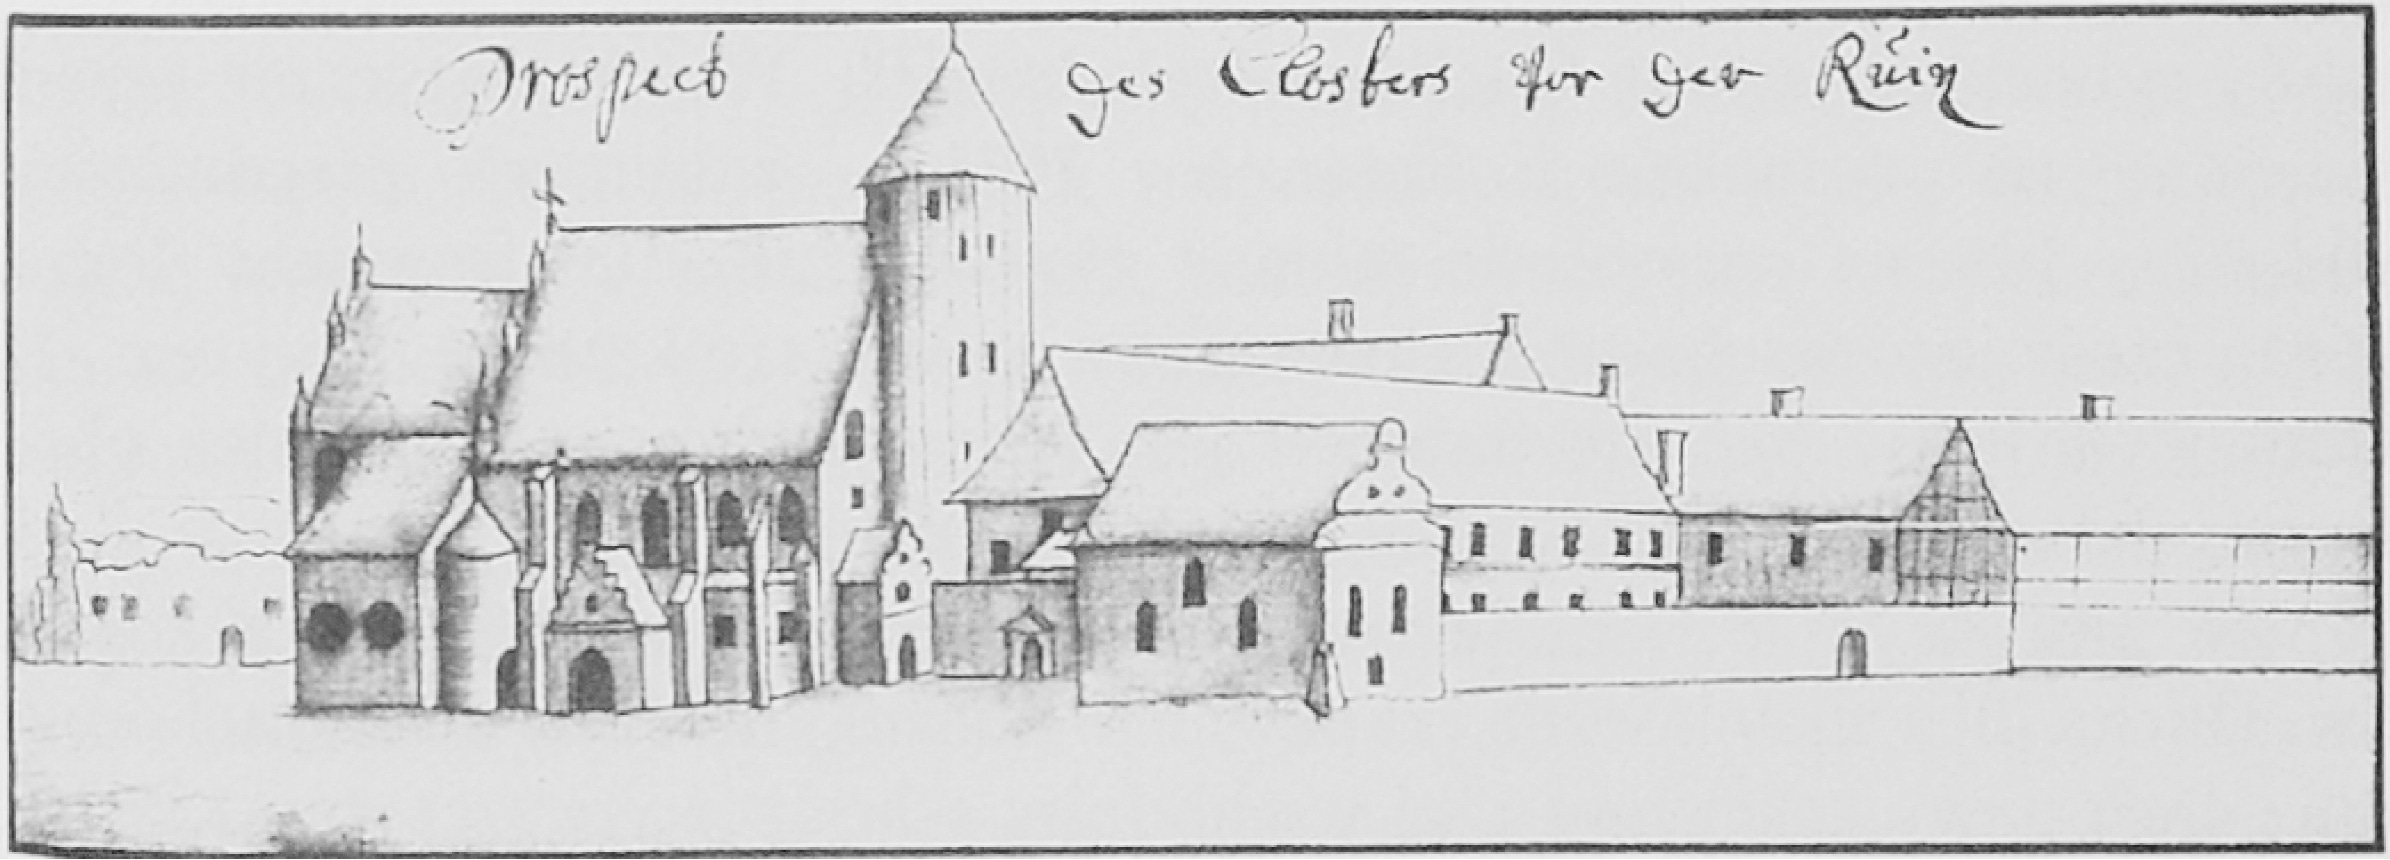 Prospect des Closters vor der Ruin